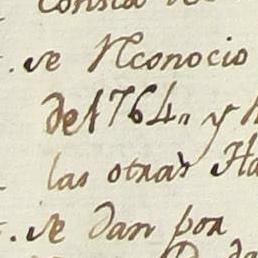 consta
se Reconocio
del 1764,, y
las otras Ha
se dan por